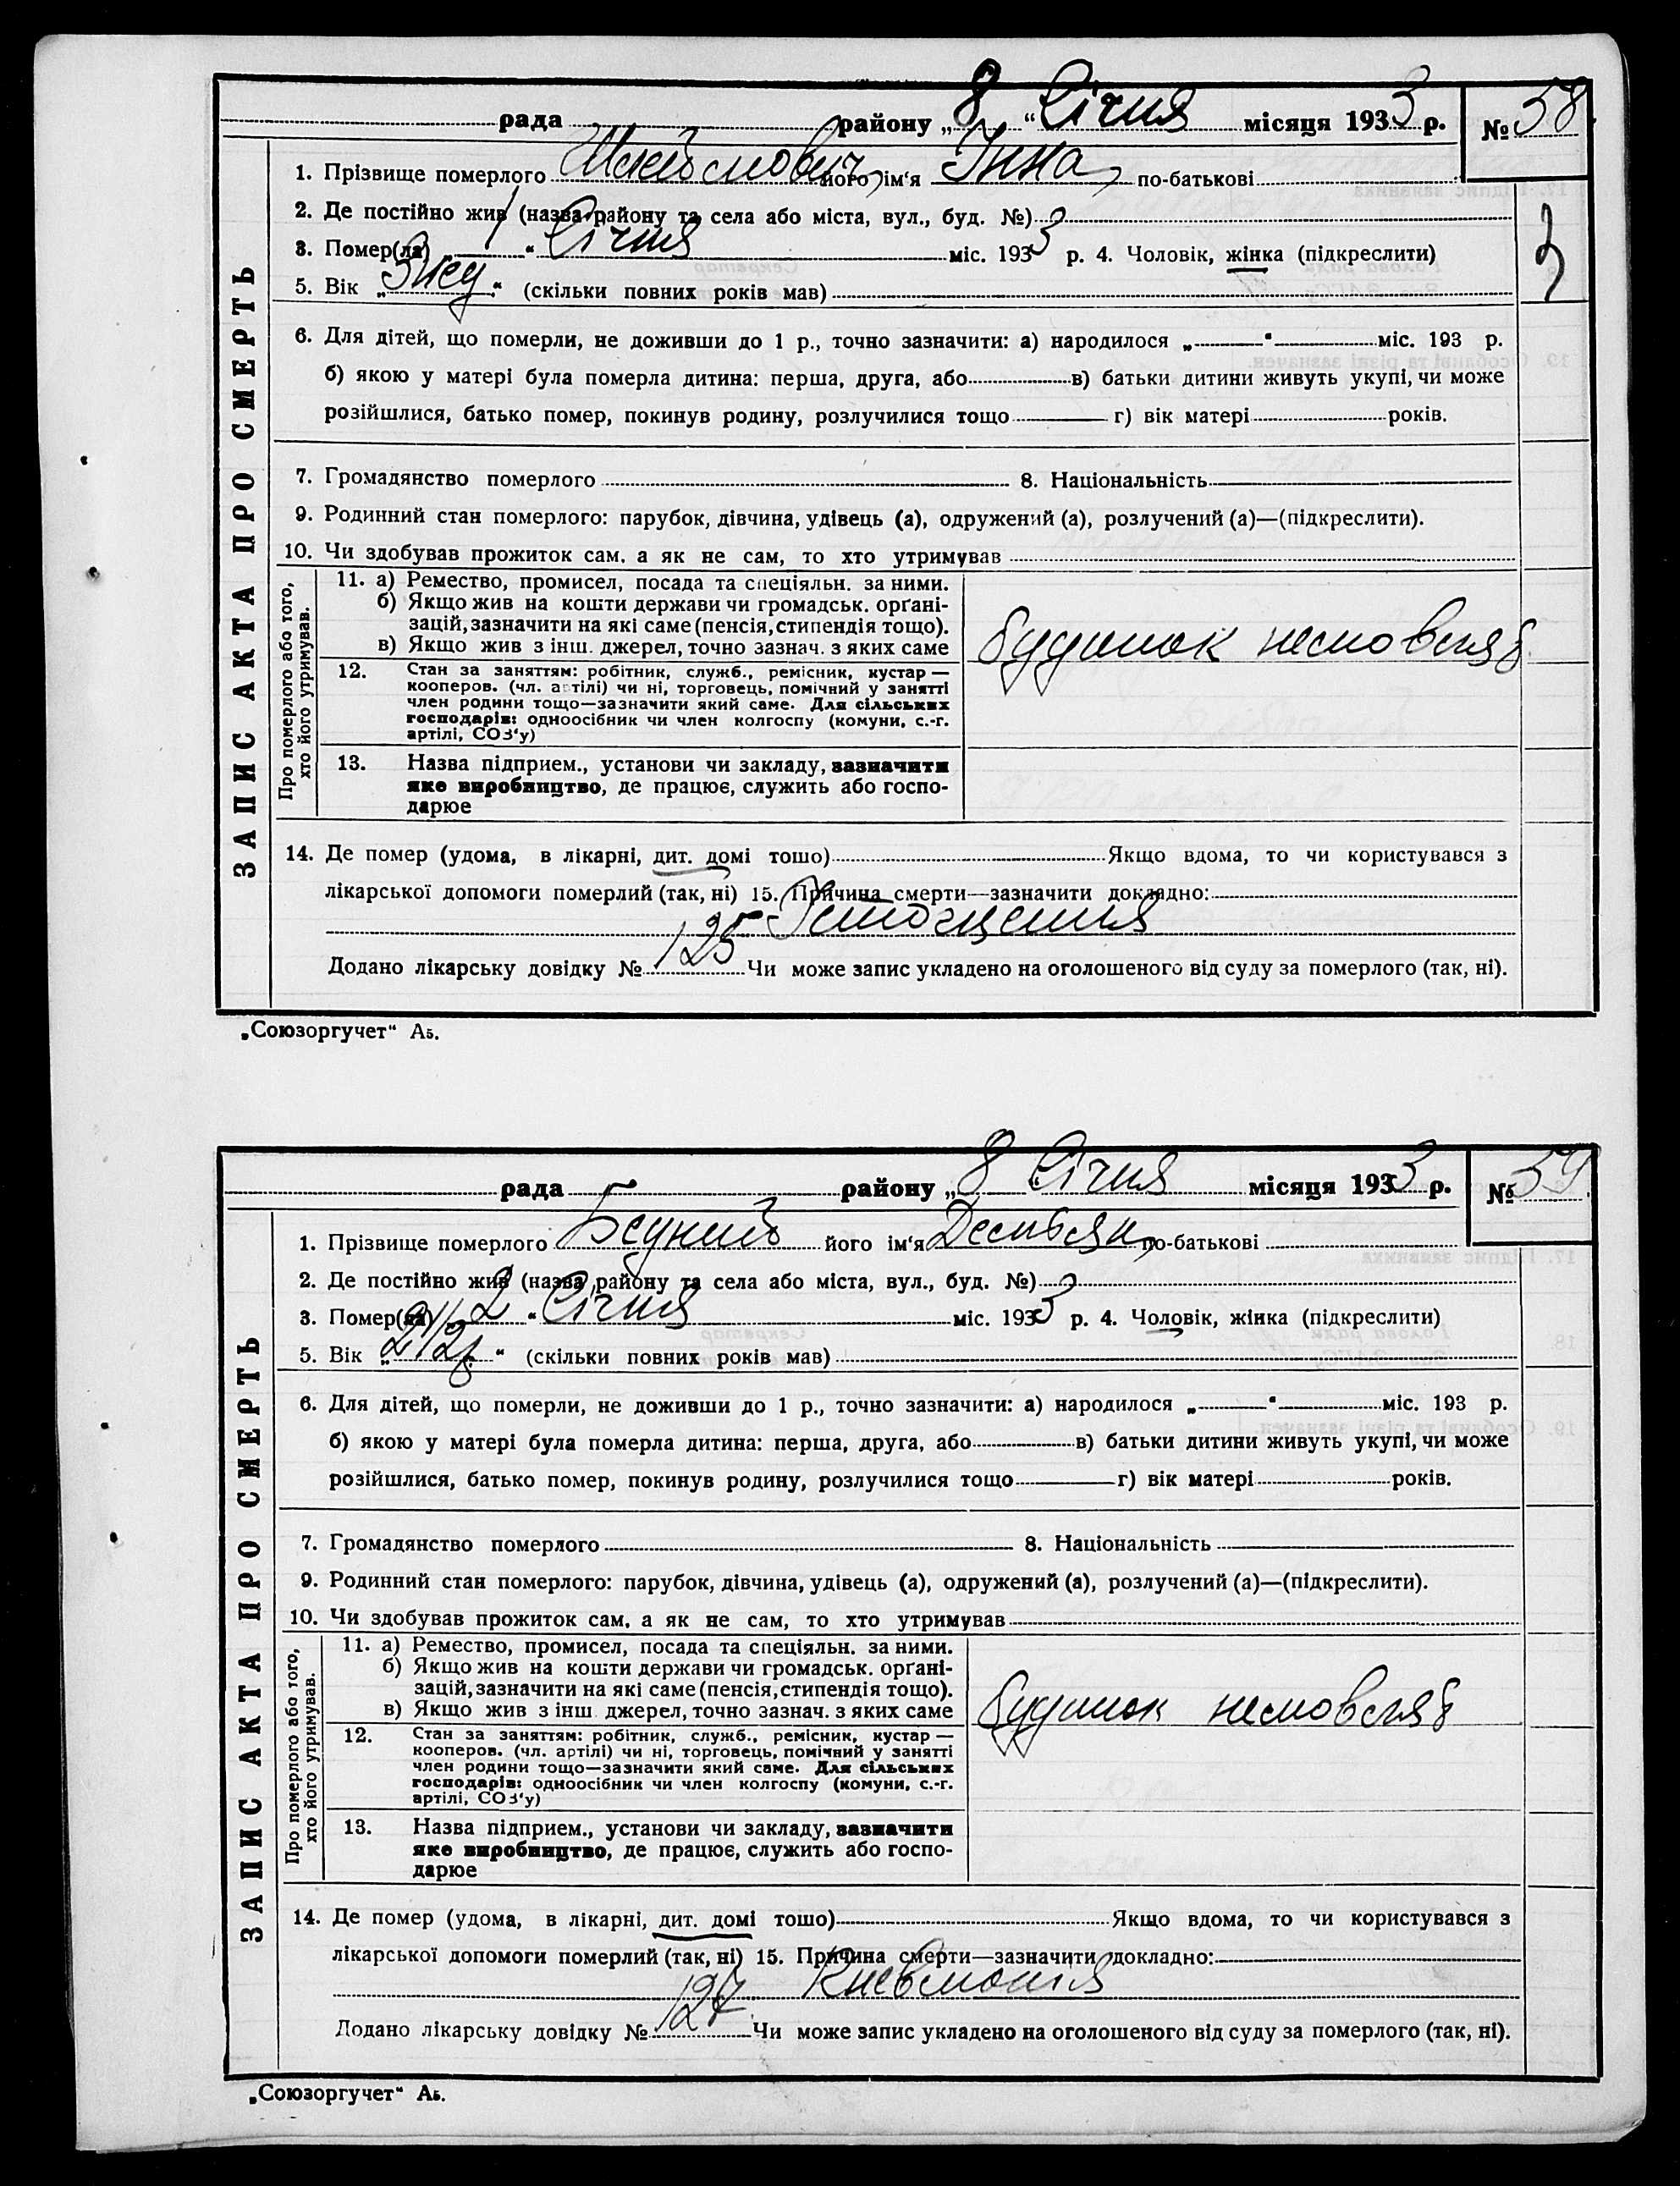 рада району „ 8 “ Січня місяця 1933 р. № 58
ЗАПИС АКТА ПРО СМЕРТЬ
1. Прізвище померлого його ім'я Інна по-батькові
2. Де постійно жив (назва району та села або міста, вул., буд. №)
3. Помер(ла) „ 1 “ Січня міс. 1933 р. 4. Чоловік, жінка (підкреслити)
5. Вік „ “ (скільки повних років мав)
6. Для дітей, що померли, не доживши до 1 р., точно зазначити: а) народилося „ “ міс. 193 р.
б) якою у матері була померла дитина: перша, друга, або в) батьки дитини живуть укупі, чи може
розійшлися, батько помер, покинув родину, розлучилися тощо г) вік матері років.
7. Громадянство померлого 8. Національність
9. Родинний стан померлого: парубок, дівчина, удівець (а), одружений (а), розлучений (а)—(підкреслити).
10. Чи здобував прожиток сам, а як не сам, то хто утримував
Про померлого або того,
хто його утримував.
11. а) Ремество, промисел, посада та спеціяльн. за ними.
б) Якщо жив на кошти держави чи громадськ. орґані-
зацій, зазначити на які саме (пенсія, стипендія тощо).
в) Якщо жив з інш. джерел, точно зазнач. з яких саме
будинок немовляб
12. Стан за заняттям: робітник, служб., ремісник, кустар —
кооперов. (чл. артілі) чи ні, торговець, помічний у занятті
член родини тощо—зазначити який саме. Для сільських
господарів: одноосібник чи член колгоспу (комуни, с.-г.
артілі, СОЗ'у)
13. Назва підприєм., установи чи закладу, зазначити
яке виробництво, де працює, служить або госпо-
дарює
14. Де помер (удома, в лікарні, дит. домі тошо) Якщо вдома, то чи користувався з
лікарської допомоги померлий (так, ні) 15. Причина смерти—зазначити докладно:
Істощення
Додано лікарську довідку № 125 Чи може запис укладено на оголошеного від суду за померлого (так, ні).
„Союзоргучет“ А5.
рада району „ 8 Січня місяця 1933 р. № 59
ЗАПИС АКТА ПРО СМЕРТЬ
1. Прізвище померлого Бедний його ім'я Демьян по-батькові
2. Де постійно жив (назва району та села або міста, вул., буд. №)
3. Помер(ла) „ 2 “ Січня міс. 1933 р. 4. Чоловік, жінка (підкреслити)
5. Вік „ 2 1/2 р. “ (скільки повних років мав)
6. Для дітей, що померли, не доживши до 1 р., точно зазначити: а) народилося „ “ міс. 193 р.
б) якою у матері була померла дитина: перша, друга, або в) батьки дитини живуть укупі, чи може
розійшлися, батько помер, покинув родину, розлучилися тощо г) вік матері років.
7. Громадянство померлого 8. Національність
9. Родинний стан померлого: парубок, дівчина, удівець (а), одружений (а), розлучений (а)—(підкреслити).
10. Чи здобував прожиток сам, а як не сам, то хто утримував
Про померлого або того,
хто його утримував.
11. а) Ремество, промисел, посада та спеціяльн. за ними.
б) Якщо жив на кошти держави чи громадськ. орґані-
зацій, зазначити на які саме (пенсія, стипендія тощо).
в) Якщо жив з інш. джерел, точно зазнач. з яких саме
будинок немовляб
12. Стан за заняттям: робітник, служб., ремісник, кустар —
кооперов. (чл. артілі) чи ні, торговець, помічний у занятті
член родини тощо—зазначити який саме. Для сільських
господарів: одноосібник чи член колгоспу (комуни, с.-г.
артілі, СОЗ'у)
13. Назва підприєм., установи чи закладу, зазначити
яке виробництво, де працює, служить або госпо-
дарює
14. Де помер (удома, в лікарні, дит. домі тошо) Якщо вдома, то чи користувався з
лікарської допомоги померлий (так, ні) 15. Причина смерти—зазначити докладно:
Пневмонія
Додано лікарську довідку № 127 Чи може запис укладено на оголошеного від суду за померлого (так, ні).
„Союзоргучет“ А5.